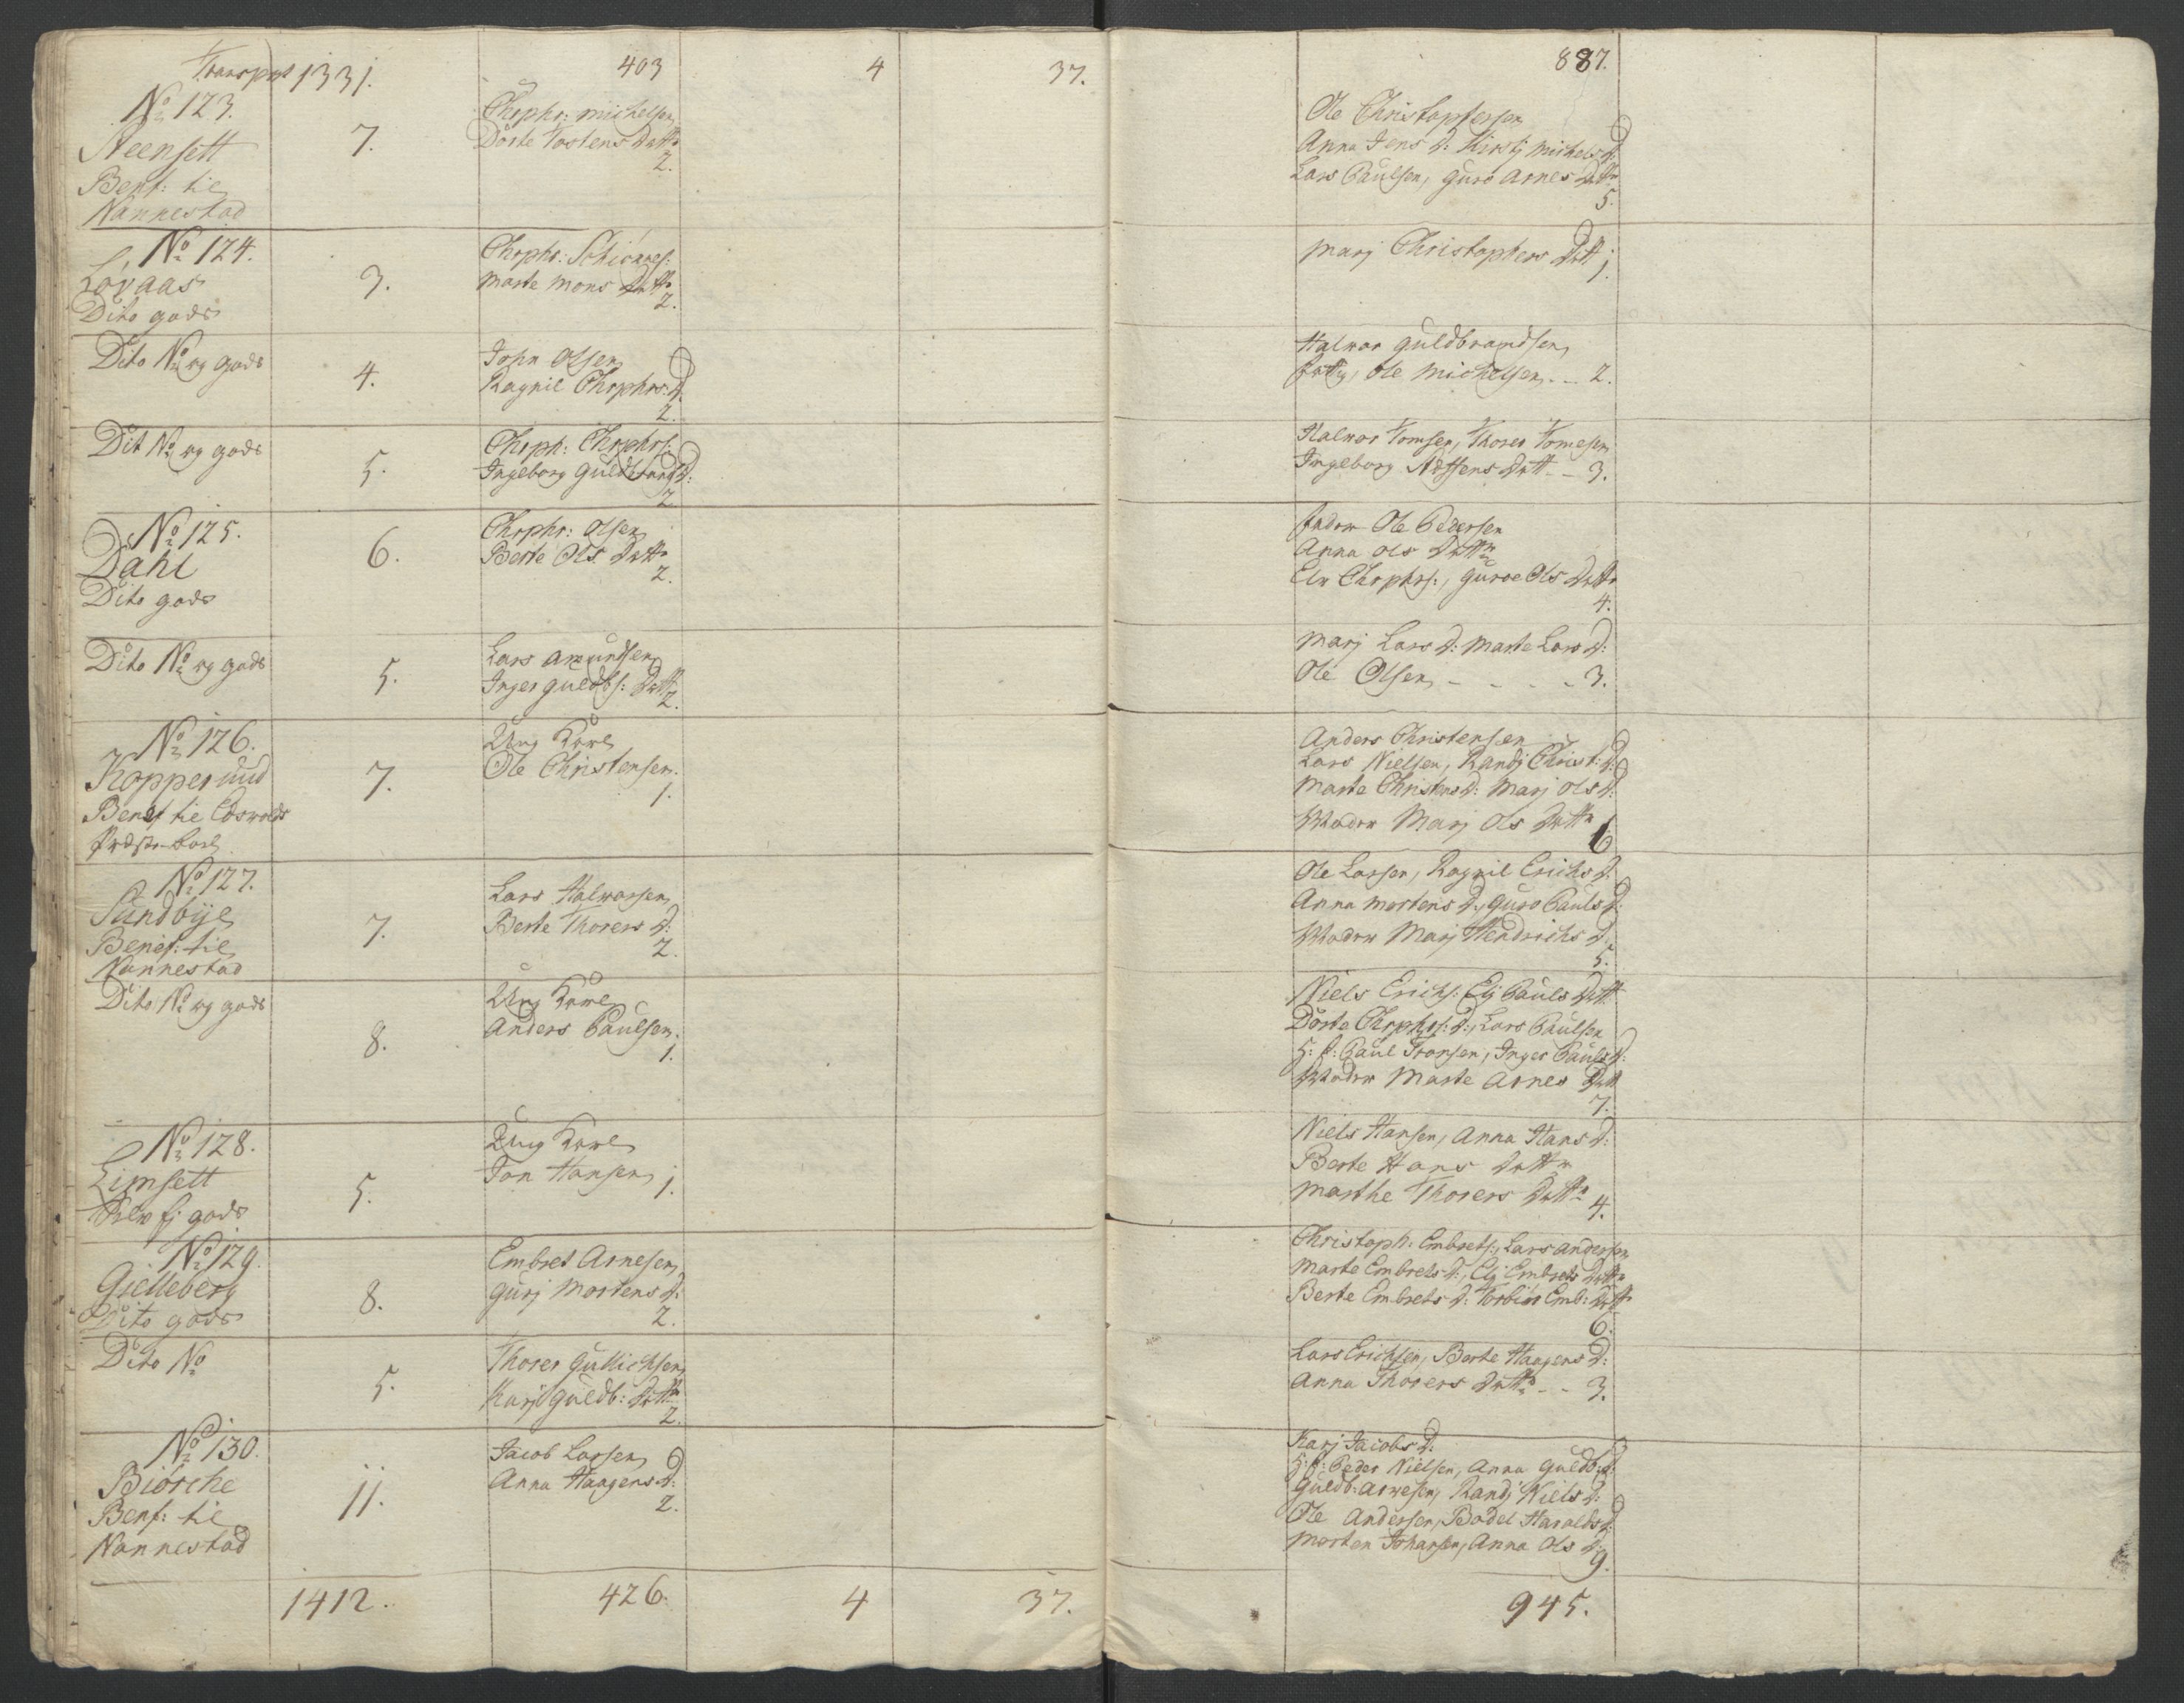 Transport 1331. 403 4 37. 887.
No 123.
Steensett
Benf: til
Nannestad
7.
Chrphr: Michelsen
Dorte Tostens Datter
2.
Ole Christophersen
Anna Jens D: Kirstj Michels D:
Lars Paulsen, Guro Arnes Datter
5.
No 124.
Løvaas
Dito gods
3.
Chrphr:
Marte Mons Datter
2.
Marj Christophers Datt
1.
Dito No og gods
4.
John Olsen
Ragnil Chrphrs: D.
2.
Halvor Guldbrandsen
Fattig, Ole Michelsen - - 2.
Dit No og gods
5.
Chrph: Chrphrs:
Ingeborg Guldbrands D:
2
Halvor Tomsen, Thorer Tomesen
Ingeborg Adssens Datt - - 3.
No 125.
Dahl
Dito gods
6.
Chrphr: Olsen
Berte Ols Datter
2.
Fader Ole Pedersen
Anna Ols Datter
Elv Chrphrs:, Guroe Ols Datter
4.
Dito No og gods
5.
Lars Amundsen
Inger Guldbs: Datt
2.
Marj Lars D: Marte Lars D:
Ole Olsen - - - - 3.
No 126.
Kopperuud
Benef til Edsvolds
Præste-boel
7.
Ung Karl
Ole Christensen.
1.
Anders Christensen
Lars Nielsen, Randj Christ: D:
Marte Christens D: Marj Ols D:
Moder Marj Ols Datter
6
No 127.
Sundbye
Benef: til
Nannestad
7.
Lars Halvorsen
Berte Thorers D:
2.
Ole Larsen, Ragnil Erichs D:
Anna Mortens D, Guro Pauls D:
Moder Marj Hendrichs D.
5.
Dito No og gods
8.
Ung Karl
Anders Paulsen.
1.
Niels Erichs: Elj Pauls Datt
Dorte Chrphrs: D:, Lars Paulsen
H: f: Paul Iversen, Inger Pauls D:
Moder Marte Arnes Datt
7.
No 128.
Limsett
gods
5.
Ung Karl
Jon Hansen
1.
Niels Hansen, Anna Hans D:
Berte Hans Datter
Marthe Thorers Datter
4.
No 129.
Gielleberg
Dito gods
8.
Embret Arnesen
Gurj Mortens D:
2.
Christoph: Embrets:, Lars Andersen
Marte Embrets D:, Elj Embrets Datter
Berte Embrets D: Torbiør Emb: Datter
6.
Dito No
5.
Thorer Gullichsen
Karj Guldb: Datter
2.
Lars Erichsen, Berte Haagens D:
Anna Thorers Datter - - 3.
No 130.
Biørche
Benf: til
Nannestad
11.
Jacob Larsen
Anna Haagens D:
2.
Karj Jacobs D:
H: f: Peder Nielsen, Anna Guldb: D:
Guldb: Arnesen, Randj Niels D:
Ole Andersen, Bodel Haralds D:
Morten Johansen, Anna Ols D
9.
1412. 426. 4 37. 945.